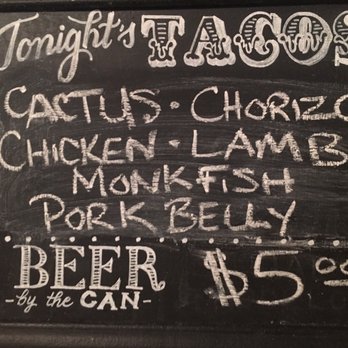 Tonight's TACOS
CACTUS · CHORIZO
CHICKEN · LAMB
MONKFISH
PORK BELLY
BEER $5.00
- by the CAN -